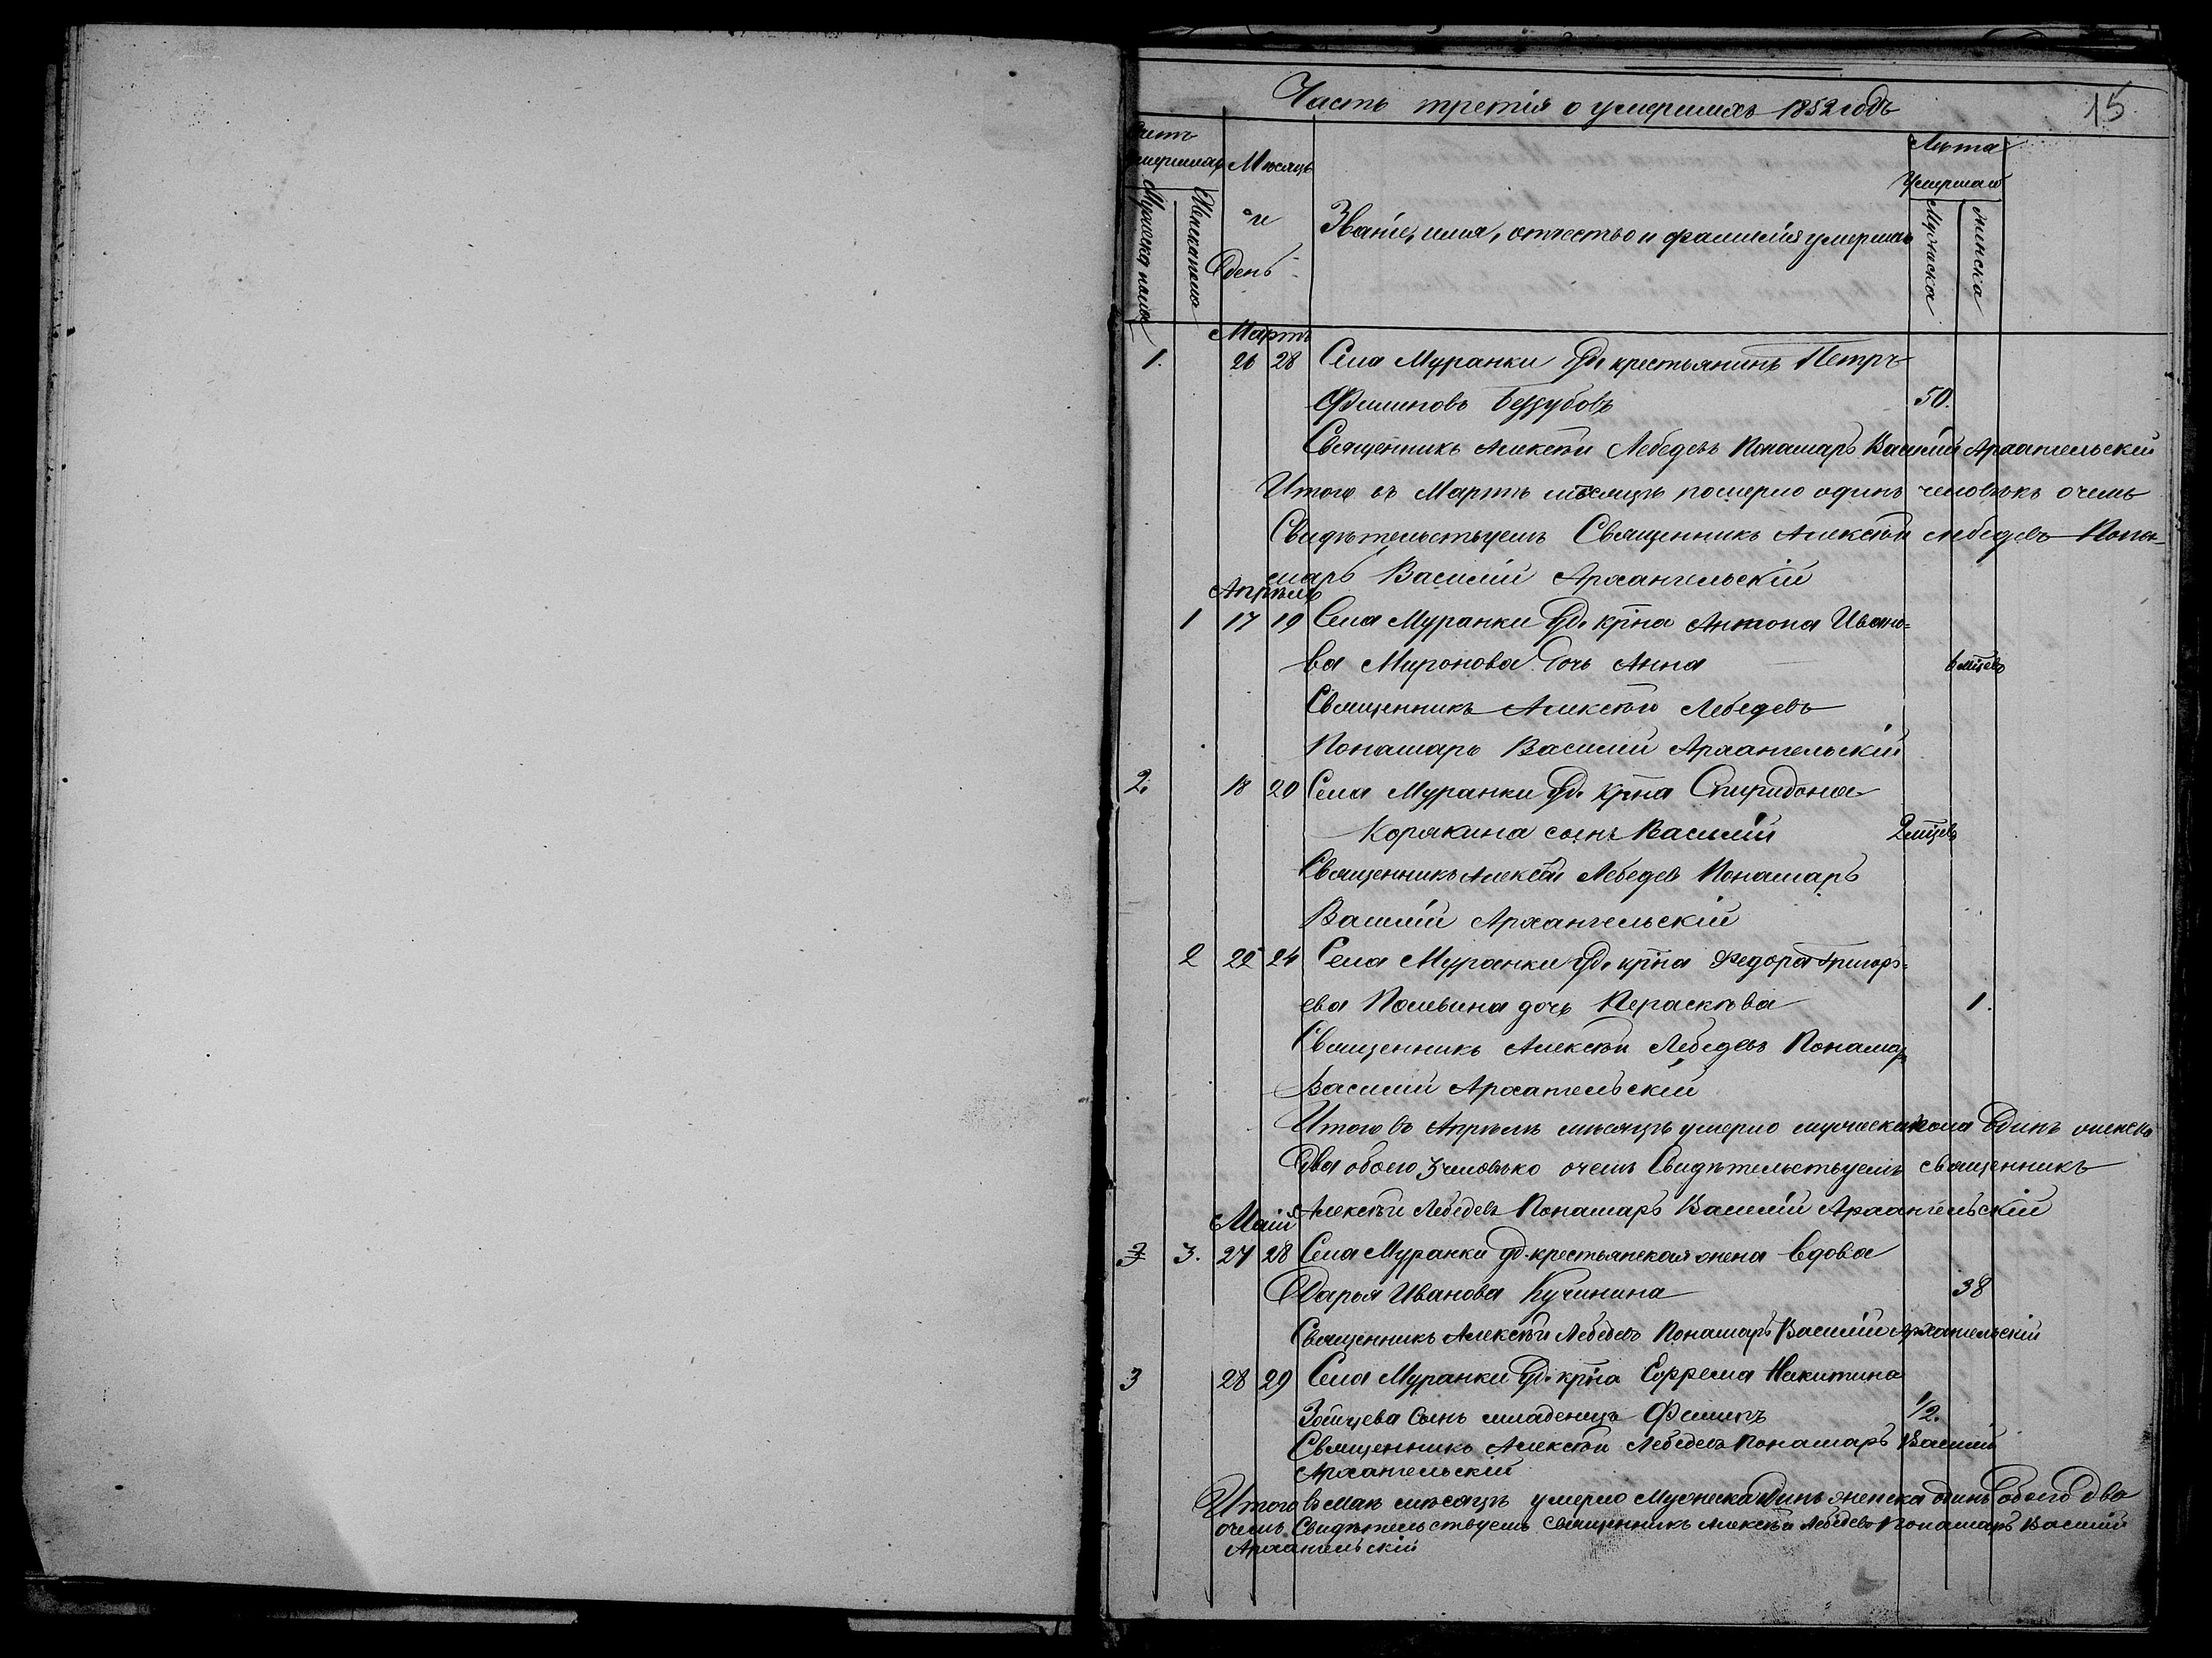 Часть третія о умершихъ 1852 годъ
15
Счетъ умершихъ
Мужеска пола
Женска пола
Мѣсяцъ и день
Званіе, имя, отчество и фамилія умершаго
Лѣта умершаго
Мужеска
женска
Мартъ
1. 26 28 Села Муранки Уд. крестьянинъ Петръ
Филиповъ Беззубовъ 50.
Священникъ Алексѣй Лебедевъ Понамарь Василій Архангельскій
Итого въ Мартѣ мѣсяцѣ померло одинъ человѣкъ очемъ
Свидѣтельствуемъ Священникъ Алексѣй Лебедевъ Пона-
марь Василій Архангельскій
Апрѣль
1 17 19 Села Муранки Уд. кр̅на Антона Ивано=
ва Миронова дочь Анна 6 мц̅евъ
Священникъ Алексѣй Лебедевъ
Понамарь Василій Архангельскій
2. 18 20 Села Муранки Уд. кр̅на Спиридона
Корякина сынъ Василій 2 мц̅евъ
Священникъ Алексѣй Лебедев Понамарь
Василій Архангельскій
2 22 24 Села Муранки Уд. кр̅на Федора Григорь=
ева дочь Параскѣва 1.
Священникъ Алексѣй Лебедевъ Понамарь
Василій Архангельскій
Итого въ Апрѣлѣ мѣсяцѣ умерло мужеска пола Одинъ женска
Два обоего 3 человѣко очемъ Свидѣтельствуемъ священникъ
Алексѣй Лебедевъ Понамарь Василій Архангельскій
Маій
3. 27 28 Села Муранки уд. крестьянская жена вдова
Дарья Иванова Кучинина 38
Священникъ Алексѣй Лебедевъ Понамарь Василій Архангельскій
3 28 29 Села Муранки Уд. кр̅на Ефрема Никитина
Зайцева Сынъ младенецъ Филипъ 1/2.
Священникъ Алексѣй Лебедевъ Понамарь Василій
Архангельскій
Итого въ маѣ мѣсяцѣ умерло Мужеска Одинъ женска одинъ Обоего Два
очемъ Свидѣтельствуемъ священникъ Алексѣй Лебедевъ Понамарь Василій
Архангельскій